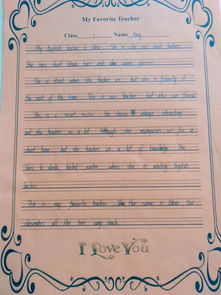 My Favorite Teacher
Class Name Amy
My English teacher is Edna. She is also our head teacher.
She has short black hair and she wears glasses.
She is strict when she teaches us, but she is friendly at
the rest of the time. She is our teacher, but also our friend.
She is a smart teacher. Her classes are always interesting
and she teaches us a lot. Although she accompanies us for a
short time, but she teaches us a lot of knowledge. She
likes to drink boiled water when she is reading English
books.
This is my favorite teacher. Her name is Edna. Our
classmates all like her very much.
I Love You